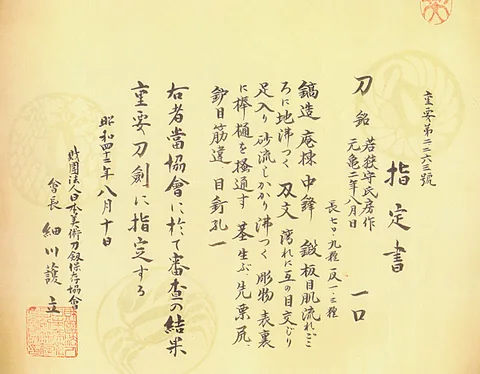 重要第二二六三號
指定書
刀 銘 若狭守氏房作 一口
元亀二年八月日
長 七〇・九糎 反 一・三糎
鎬造 庵棟 中鋒 鍛 板目肌流れごこ
ろに地沸つく 刃文 湾れに互の目交じり
足入り 砂流しかかり 沸つく 彫物 表裏
に棒樋を掻通す 茎 生ぶ 先栗尻
鑢目筋違 目釘孔一
右者當協會に於て審査の結果
重要刀剣に指定する
昭和四十三年八月十日
財團法人日本美術刀剱保存協會
會長 細川護立